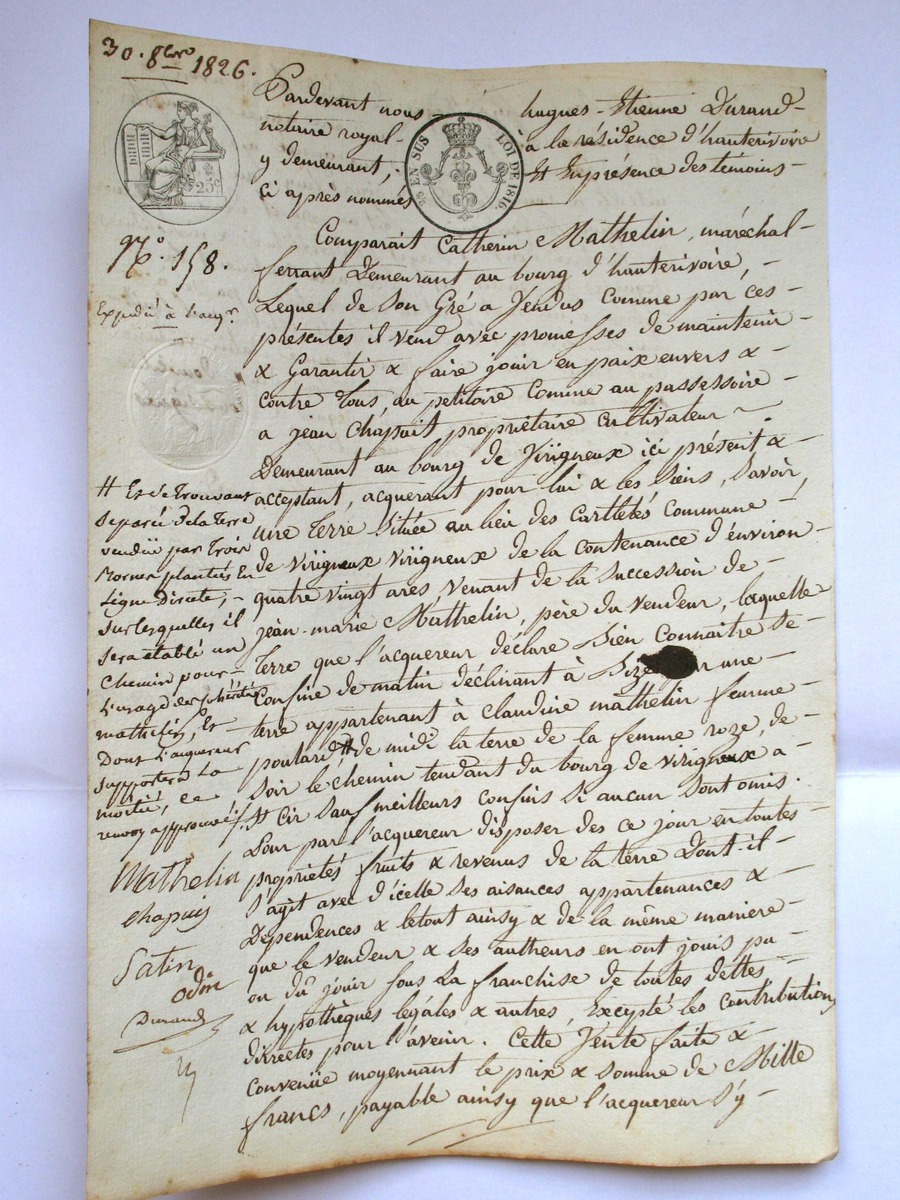 30. 8bre 1826.
Pardevant nous hugues-Etienne Durand-
notaire royal- à la résidence d'hauterivoire
y demeurant, & En présence des témoins-
ci après nommés
25 EN SUS LOI DE 1816.
25c
Comparait Catherin Mathelin, maréchal-
N.o 158.
ferrant Demeurant au bourg d'hauterivoire, -
Expédié à l'acqr.
Lequel de Son Gré a Vendus comme par ces-
présentes il vend avec promesses de maintenir
& Garantir & faire jouir en paix envers &
contre tous, au petitoire comme au passessoire-
a jean Chapuit propriétaire cultivateur ~
Demeurant au bourg de Virigneux ici présent &-
acceptant, acquerant pour lui & les Siens, Savoir,
une terre Située au lieu des Commune-
de virigneux virigneux de la contenance d'environ-
quatre vingt ares, venant de la Succession de-
jean-marie Mathelin, père du vendeur, laquelle
terre que l'acquereur déclare Bien Connaitre Se-
Confine de matin déclinant à Bize par une-
terre appartenant à claudine mathelin femme-
poulard, # de midi la terre de la femme roze, de-
Soir le chemin tendant du bourg de virigneux a-
St Cir Sauf meilleurs confins Si aucun Sont omis.
Pour par l'acquereur disposer des ce jour en toutes-
propriétés fruits & revenus de la terre Dont-il-
S'agit avec d'icelle Ses aisances appartenances &-
Dépendences & le tout ainsy & de la même maniere-
que le vendeur & Ses autheurs en ont jouis pu-
ou dû jouir Sous La franchise de toutes dettes-
& hypothèques légales & autres, Excepté les contributions
directes pour l'avenir. Cette Vente faite &-
Convenüe moyennant le prix & Somme de Mille
francs, payable ainsy que l'acquereur S'y-
# Et Se trouvant
Separée de la terre
vendüe par trois
Bornes plantées En
Ligne Directe, -
Sur lesquelles il
Sera établé un
Chemin pour-
L'usage des héritiers
mathelin, Et
Dont L'acquereur
Supportera La
moitié, ce
renvoy approuvé.
Mathelin
chapuis
Satin
odin
Durand